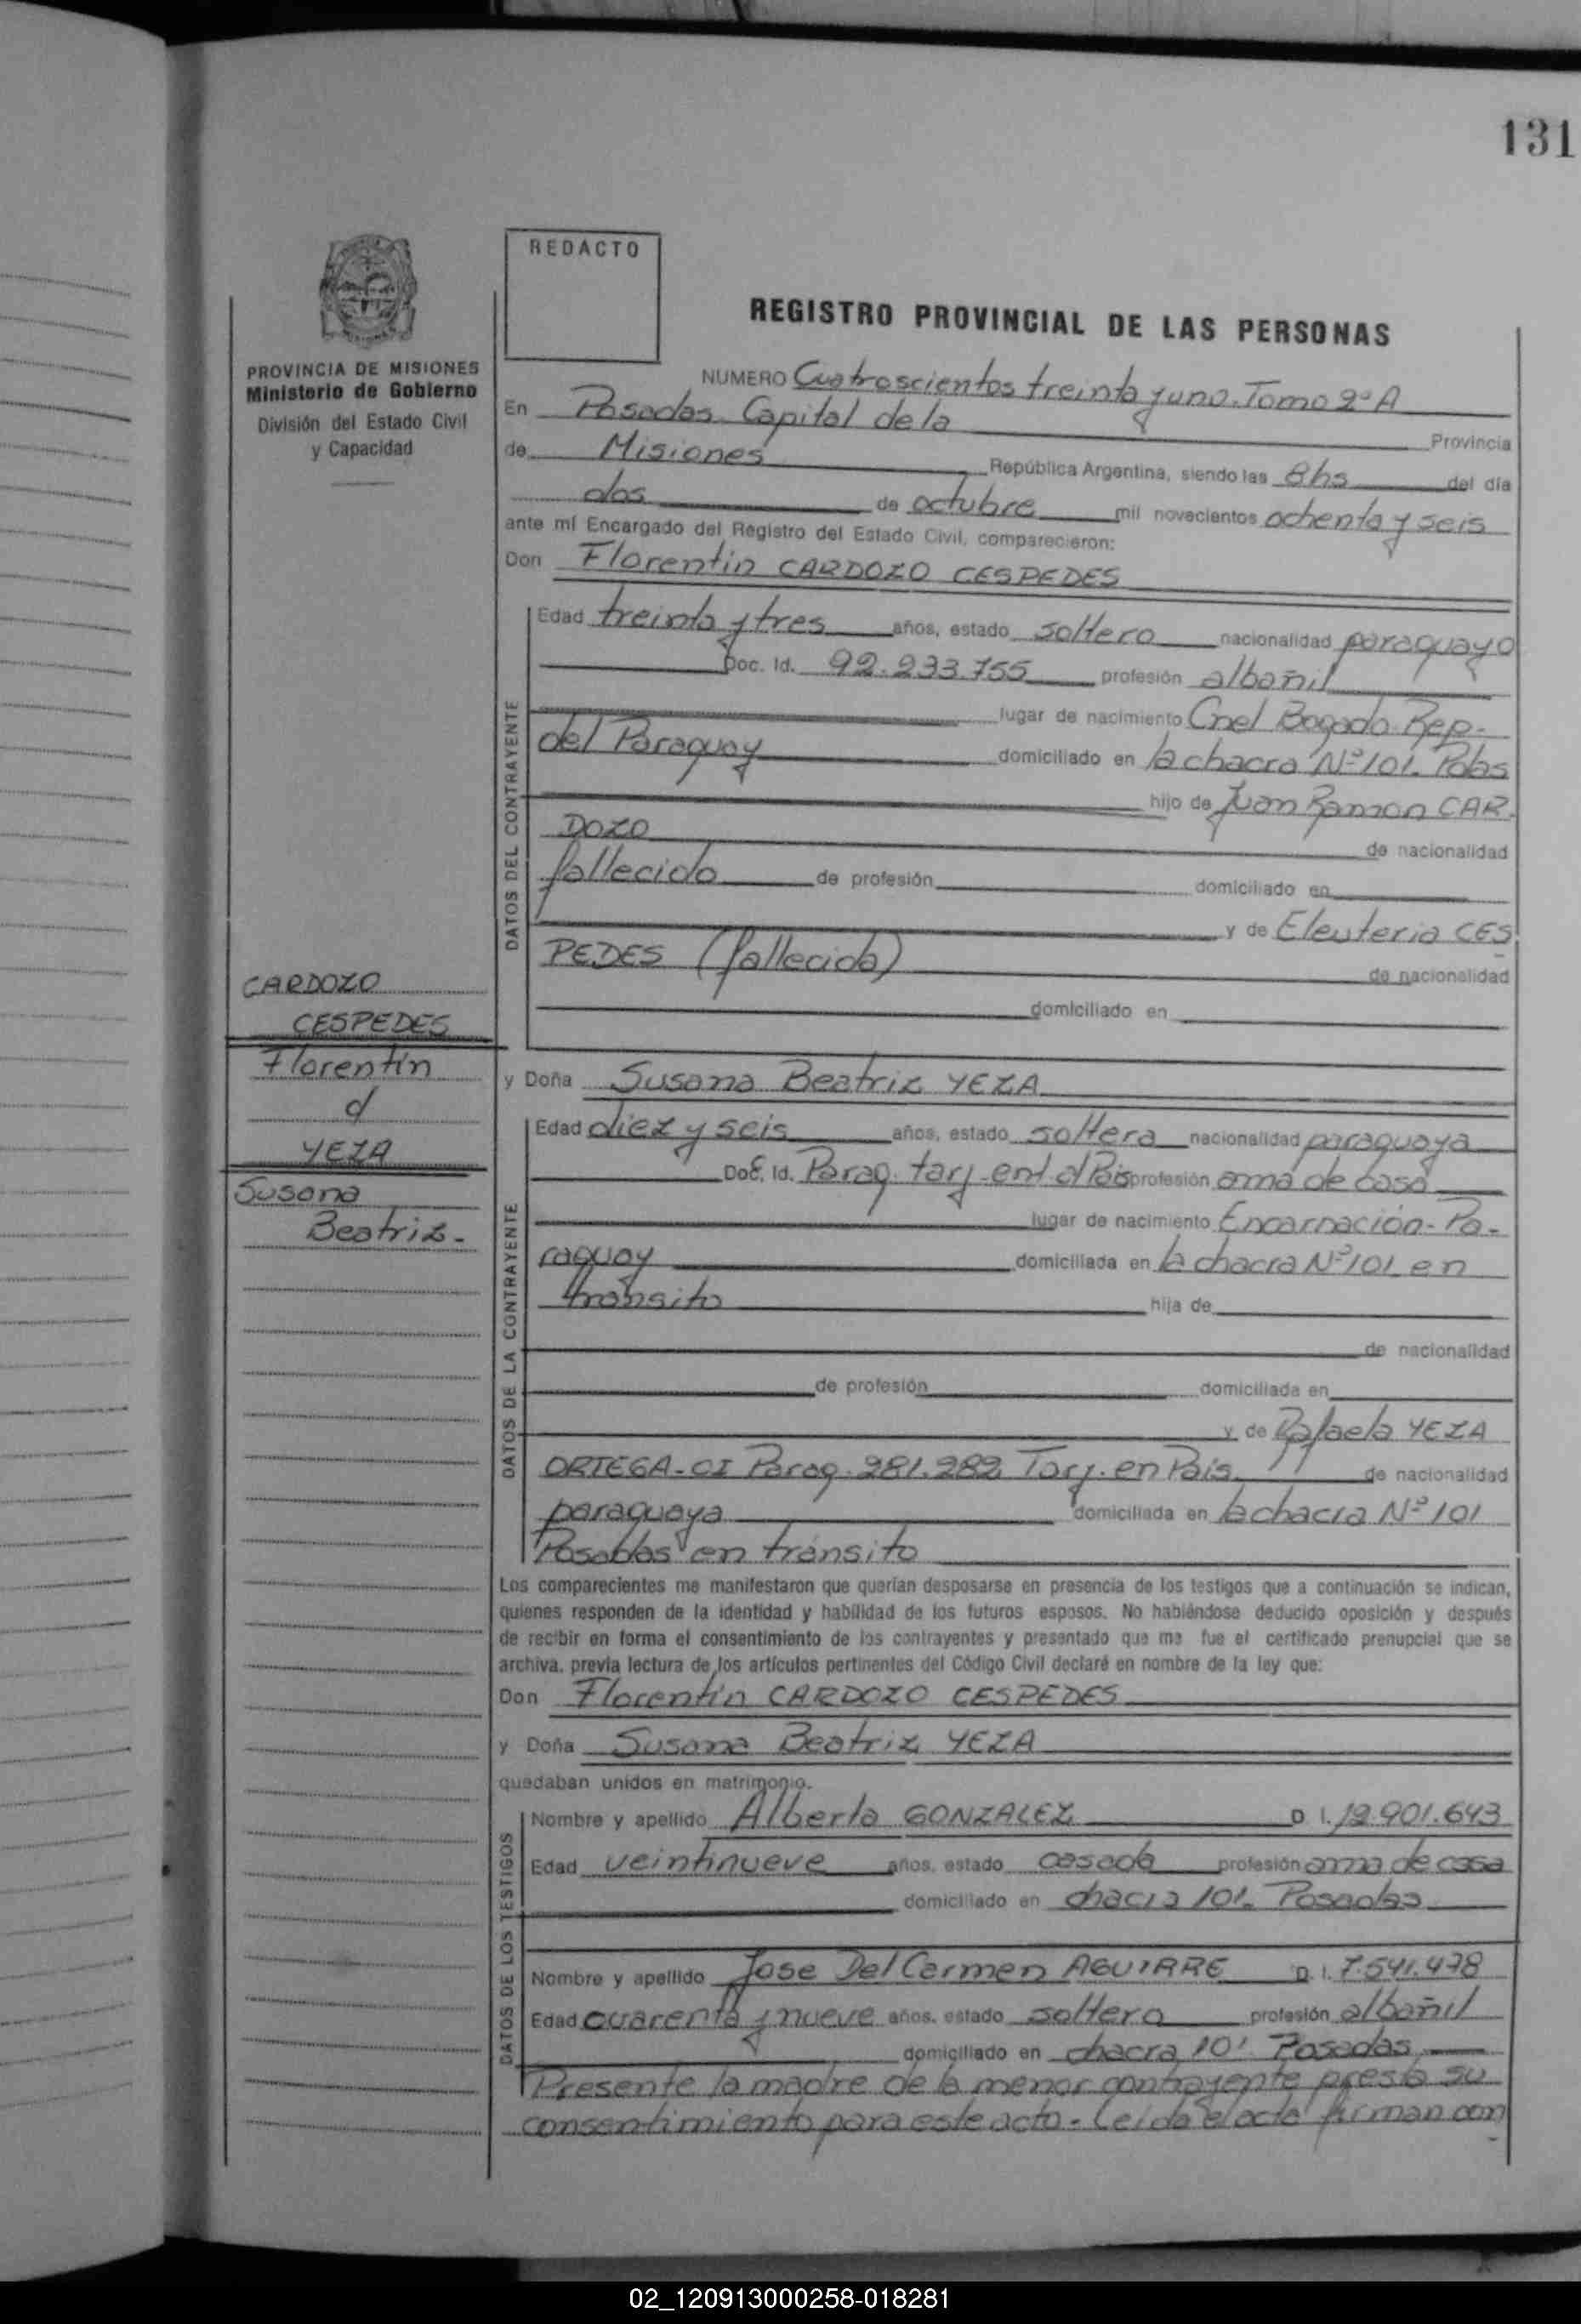 131
REDACTO
PROVINCIA DE MISIONES
Ministerio de Gobierno
División del Estado Civil
y Capacidad
REGISTRO PROVINCIAL DE LAS PERSONAS
NUMERO Cuatroscientos treinta y uno. Tomo 2º A
En Posadas Capital de la Provincia
de Misiones República Argentina, siendo las 8hs del día
dos de octubre mil novecientos ochenta y seis
ante mí Encargado del Registro del Estado Civil, comparecieron:
Don Florentin CARDOZO CESPEDES
DATOS DEL CONTRAYENTE
Edad treinta y tres años, estado soltero nacionalidad paraguayo
Doc. Id. 92.233.755 profesión albañil
lugar de nacimiento Cnel Bogado-Rep-
del Paraguay domiciliado en la chacra Nº 101. Pdas
hijo de Juan Ramon CAR.
DOZO de nacionalidad
fallecido de profesión domiciliado en
y de Eleuteria CES
PEDES (fallecida) de nacionalidad
domiciliado en
CARDOZO
CESPEDES
Florentin
YEZA
Susana
Beatriz-
y Doña Susana Beatriz YEZA
DATOS DE LA CONTRAYENTE
Edad diez y seis años, estado soltera nacionalidad paraguaya
Doc. Id. Parag. tarj-ent. al Pais profesión ama de casa
lugar de nacimiento Encarnación-Pa-
raguay domiciliada en la chacra Nº 101 en
transito hija de
de nacionalidad
de profesión domiciliada en
y de Rafaela YEZA
ORTEGA-CI Parag. 281.282 Tarj. en Pais de nacionalidad
paraguaya domiciliada en la chacra Nº 101
Posadas en tránsito
Los comparecientes me manifestaron que querían desposarse en presencia de los testigos que a continuación se indican,
quienes responden de la identidad y habilidad de los futuros esposos. No habiéndose deducido oposición y después
de recibir en forma el consentimiento de los contrayentes y presentado que me fue el certificado prenupcial que se
archiva, previa lectura de los artículos pertinentes del Código Civil declaré en nombre de la ley que:
Don Florentin CARDOZO CESPEDES
y Doña Susana Beatriz YEZA
quedaban unidos en matrimonio.
DATOS DE LOS TESTIGOS
Nombre y apellido Alberta GONZALEZ D I. 12.901.643
Edad veintinueve años, estado casada profesión ama de casa
domiciliado en chacra 101. Posadas
Nombre y apellido Jose Del Carmen AGUIRRE D. I. 7.541.478
Edad cuarenta y nueve años, estado soltero profesión albañil
domiciliado en chacra 101 Posadas
Presente la madre de la menor contrayente presta su
consentimiento para este acto. Leida el acta firman con
02_120913000258-018281